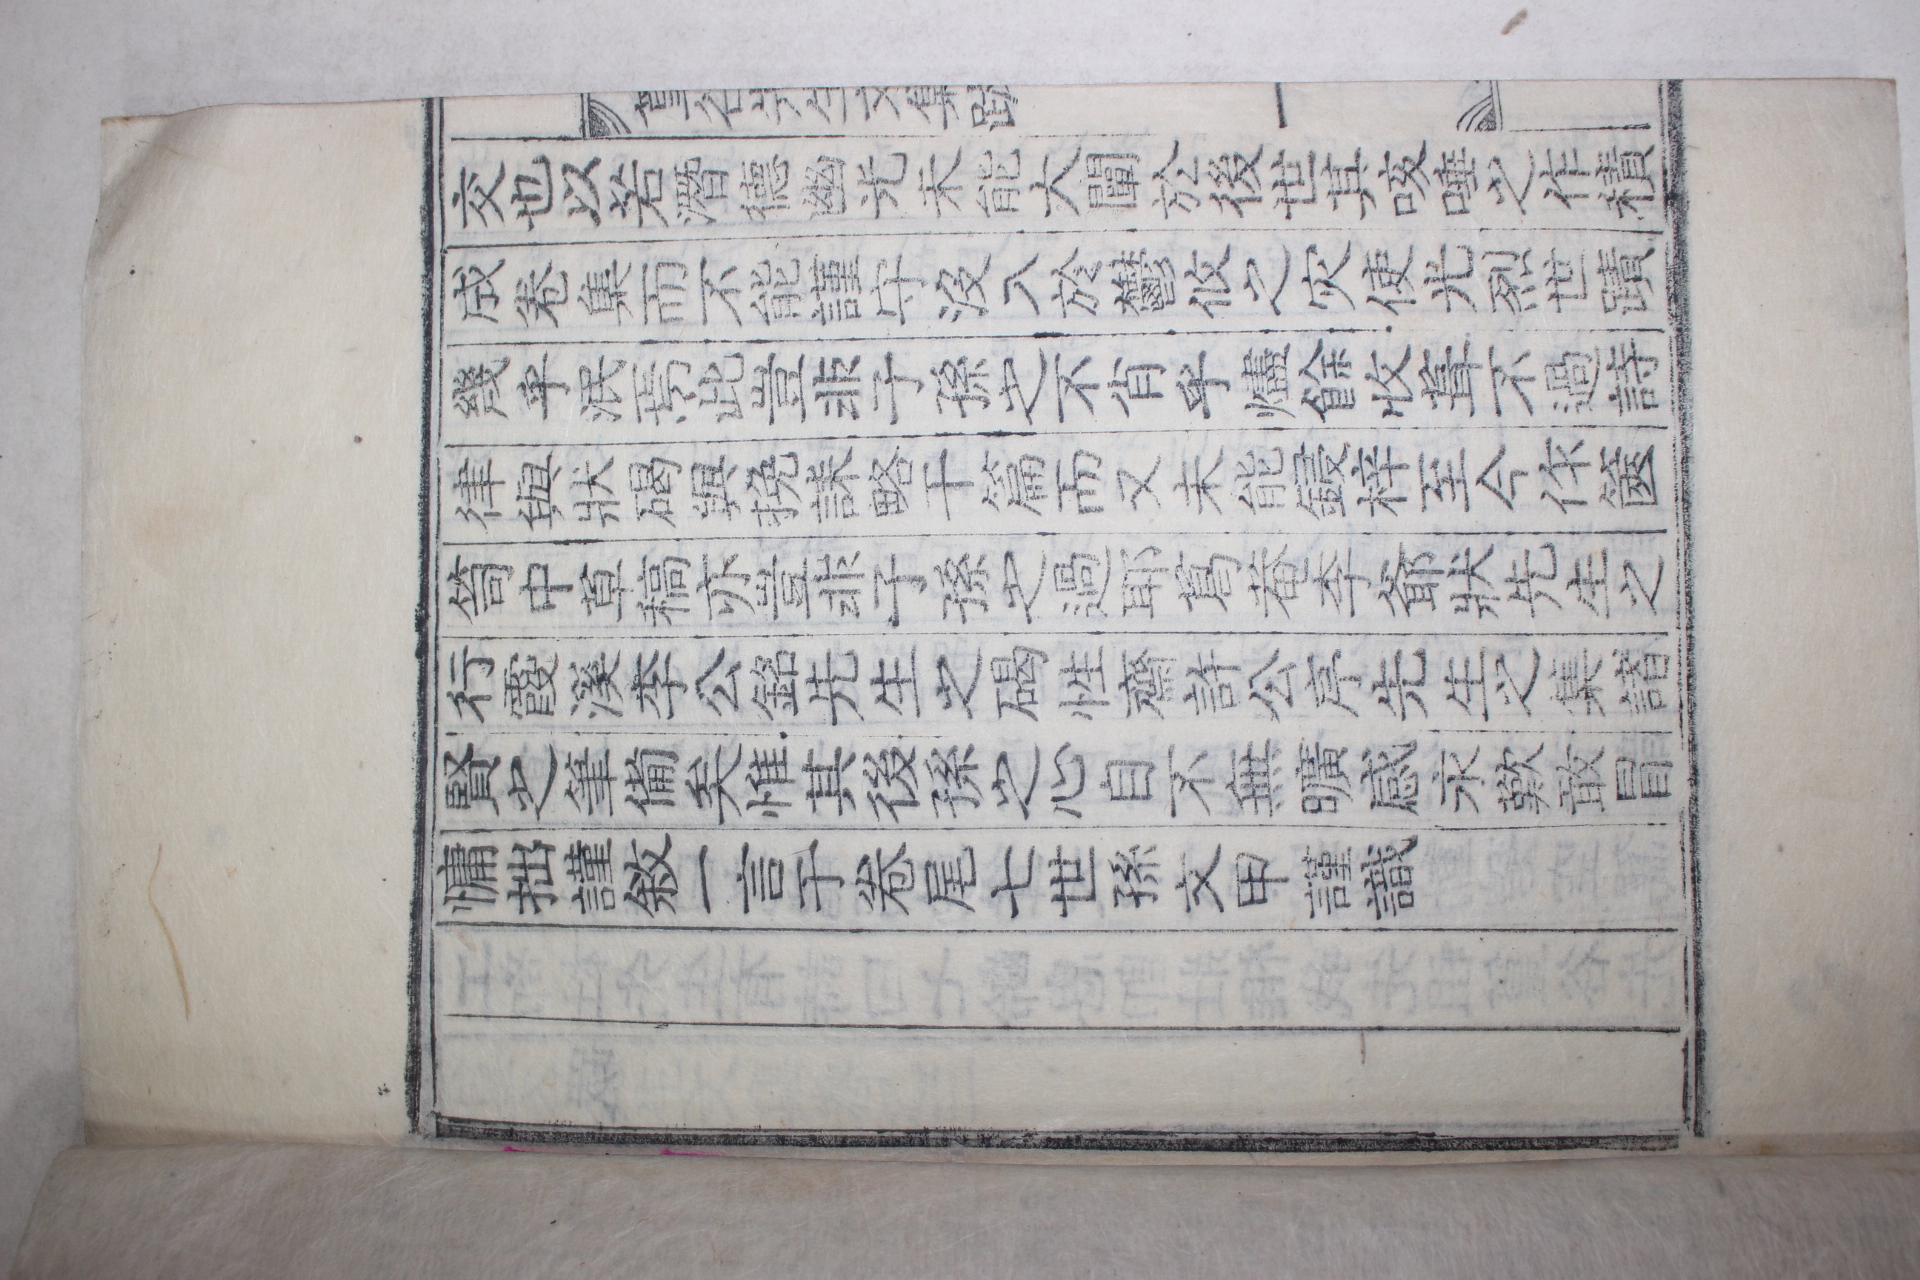 篔谷先生文集跋
交也以若潛德幽光未能大闡於後世其咳唾之作積
成卷集而不能謹守沒入於鬱攸之灾使光烈世蹟
幾乎泯焉此豈非子孫之不肖乎燼餘收葺不過詩
律與狀碣挽誄略干篇而又未能鋟梓至今作篋
笥中草稿亦豈非子孫之過耶菴李爺狀先生之
行霞溪李公銘先生之碣性齋許公序先生之集諸
賢之筆備矣惟其後孫之心自不無曠感永歎敢冒
慵拙謹敘一言于卷尾七世孫文甲謹識